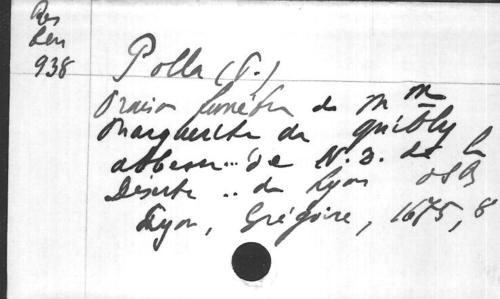 Res
Len
938
Polla (P.)
Oraison funèbre de Mme
Marguerite de Quibly
abbesse .. de N. D. de la
Déserte .. de Lyon OSB
Lyon, Grégoire, 1675, 8°